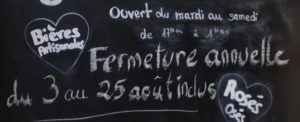 Bières
Artisanales
Ouvert du mardi au samedi
de 17h00 à 1h00
Fermeture annuelle
du 3 au 25 août inclus
Rosés
Osés